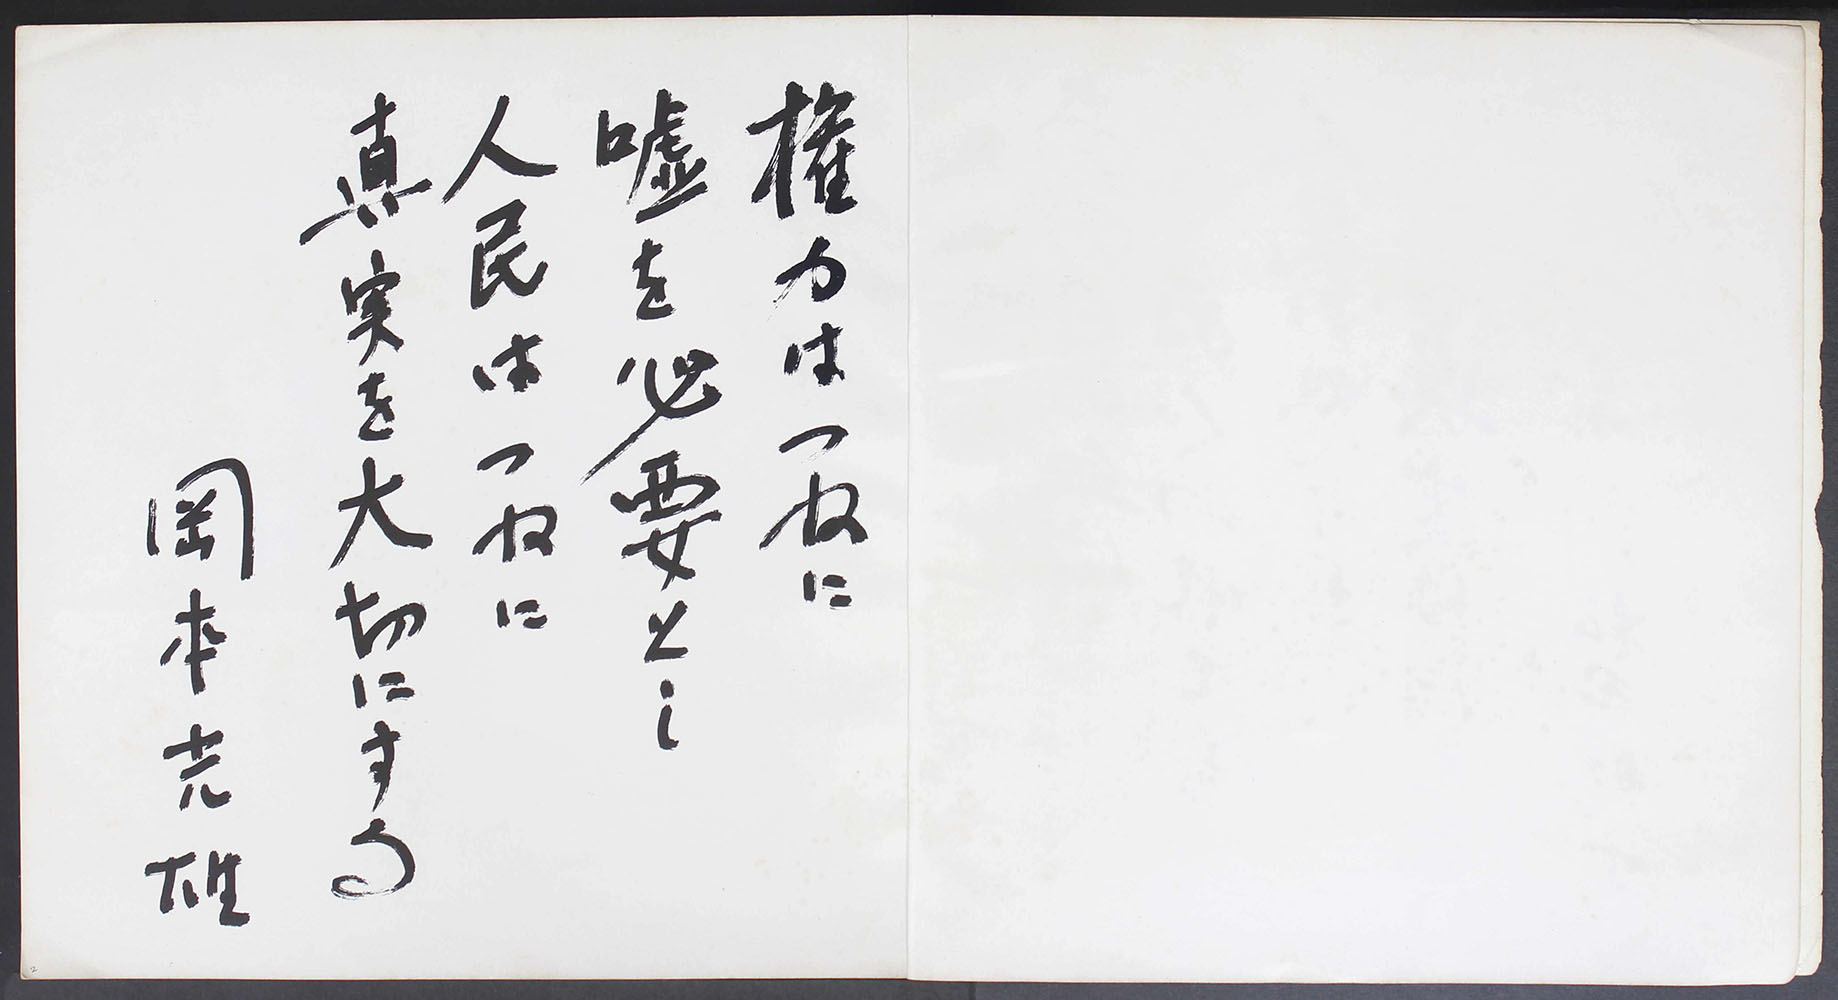 権力はつねに
嘘を必要とし
人民はつねに
真実を大切にする
岡本光雄
2